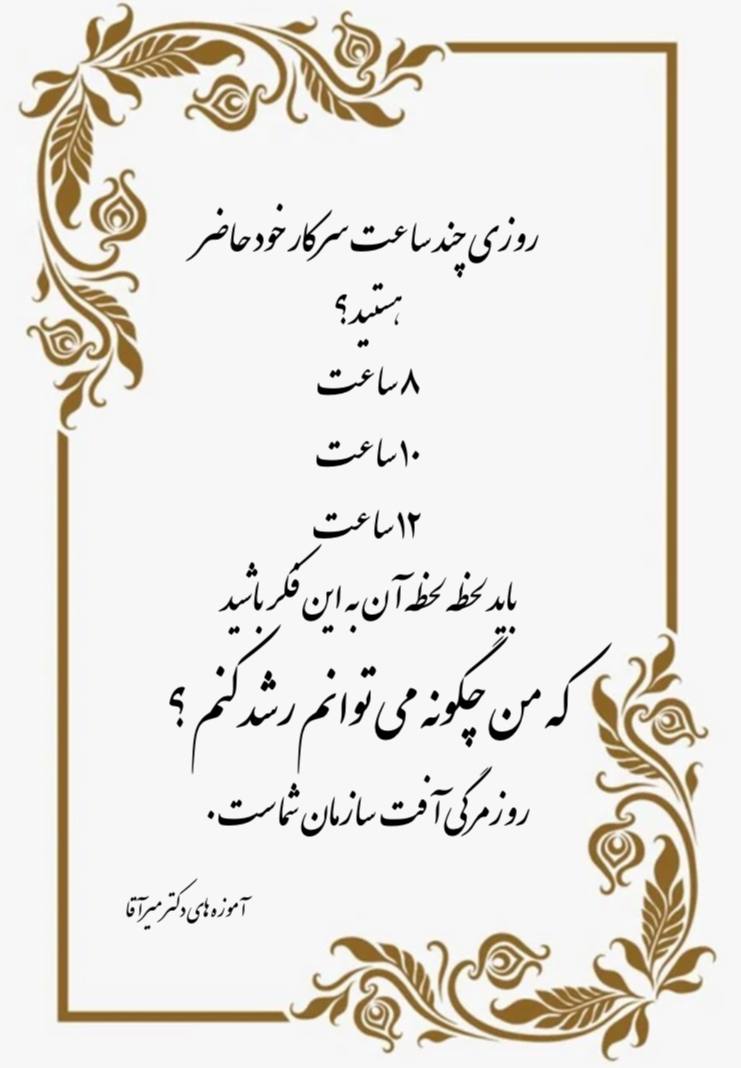 روزی چند ساعت سر کار خود حاضر
هستید؟
۸ ساعت
۱۰ ساعت
۱۲ ساعت
باید لحظه لحظه آن به این فکر باشید
که من چگونه می توانم رشد کنم ؟
روزمرگی آفت سازمان شماست.
آموزه های دکتر میرآقا